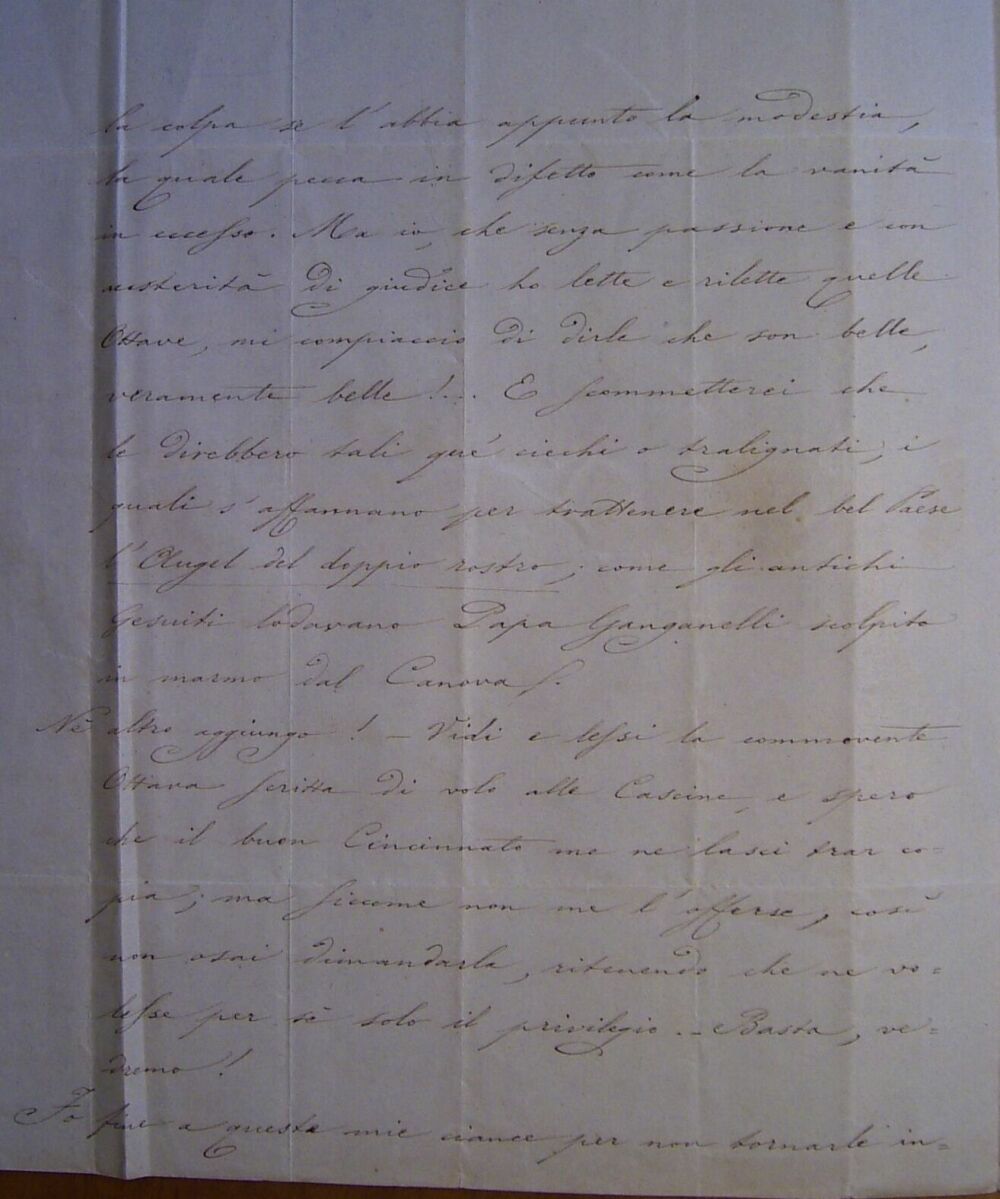 la colpa se l'abbia appunto la modestia,
la quale pecca in difetto come la vanità
in eccesso. Ma io, che senza passione e con
austerità di giudice ho lette e rilette quelle
Ottave, mi compiaccio di dirle che son belle,
veramente belle!... E scommetterei che
le direbbero tali que' ciechi o tralignati, i
quali s'affannano per trattenere nel bel Paese
l'Augel del doppio rostro; come gli antichi
Gesuiti lodavano Papa Ganganelli scolpito
in marmo dal Canova.
Nè altro aggiungo! - Vidi e lessi la commovente
Ottava scritta di volo alle Cascine, e spero
che il buon Cincinnato me ne lasci trar co=
pia; ma siccome non me l'offerse, così
non osai dimandarla, ritenendo che ne vo=
lesse per sè solo il privilegio. - Basta, ve=
dremo!
Fo fine a queste mie ciance per non tornarle in=